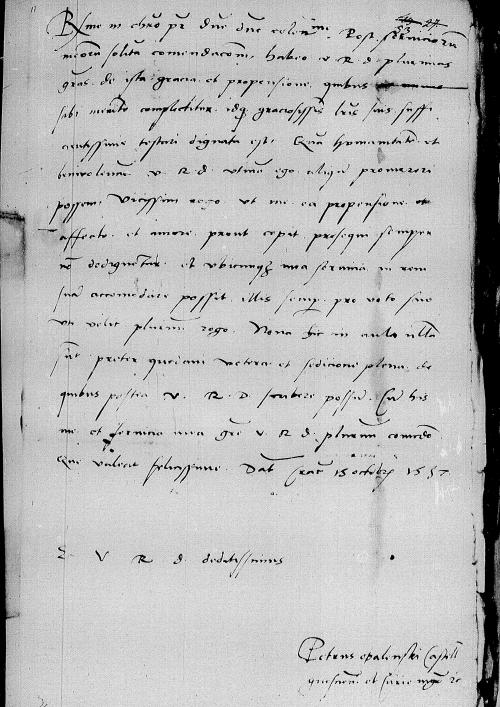 R͞me in chro pr dne dne colen͞me. Post servicioru
meoru solita comendacom, habeo v R d plurimas
gras de ista gracia et propensione quibus
sibi merito complectitur idq graciosissis lris suis suffi
cientissime testari dignata est. Qua humanitate et
benevolencia v. R d utina ego aliqn promereri
possem. Vicissim rogo ut me ea propensione et
affectu et amore prout cepit prosequi semper
no dedignetur et ubicunq mea servicia in rem
sua accomodare possit illis semp pro voto suo
uti velit plurimu rogo. Nova hic in aula nulla
sut preter quedam vetera et sedicione plena de
quibus postea V. R. D. scribere possu. Cu his
me et servicia mea gre V R d plurimu comedo
Que valeat felicissime. Dat Crac 15 octobris 1537
E V R d deditissimus
Petrus opalenski Castell
gnesnen et Curie mgr